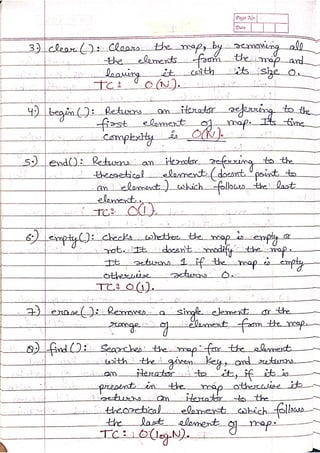 Page No.
Date
3) clear(): Clears the map, by removing all
the elements from the map and
leaving it with its size 0.
TC: O(N).
4) begin(): Returns an iterator referring to the
first element of map. Its time
complexity is O(N).
5) end(): Returns an iterator referring to the
theoretical element (doesnt point to
an element) which follows the last
element.
TC: O(1).
6) empty(): checks whether the map is empty or
not. It doesn't modify the map.
It returns 1 if the map is empty
otherwise returns 0.
TC: O(1).
7) erase(): Removes a single element or the
range of element from the map.
8) find(): Searches the map for the element
with the given key, and returns
an iterator to it, if it is
present in the map otherwise it
returns an iterator to the
theoretical element which follows
the last element of map.
TC: O(logN).